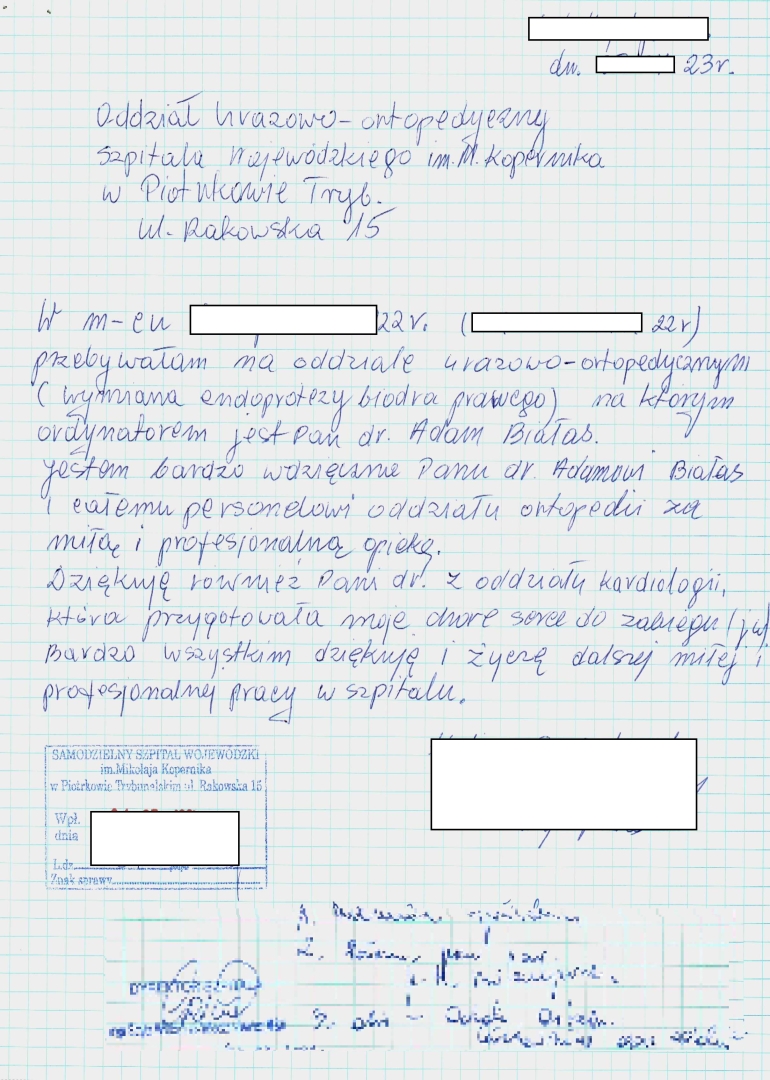 dn. 23r.
Oddział Urazowo-ortopedyczny
Szpitala Wojewódzkiego im. M. Kopernika
w Piotrkowie Tryb.
Ul. Rakowska 15
W m-cu 22r. ( 22r)
przebywałam na oddziale urazowo-ortopedycznym
( wymiana endoprotezy biodra prawego) na którym
ordynatorem jest Pan dr. Adam Białas.
Jestem bardzo wdzięczna Panu dr. Adamowi Białas
i całemu personelowi oddziału ortopedii za
miłą i profesjonalną opiekę.
Dziękuję również Pani dr. z oddziału kardiologii,
która przygotowała moje chore serce do zabiegu (jw)
Bardzo wszystkim dziękuję i życzę dalszej miłej i
profesjonalnej pracy w szpitalu.
SAMODZIELNY SZPITAL WOJEWÓDZKI
im.Mikołaja Kopernika
w Piotrkowie Trybunalskim ul. Rakowska 15
Wpł.
dnia
L.dz.
Znak sprawy